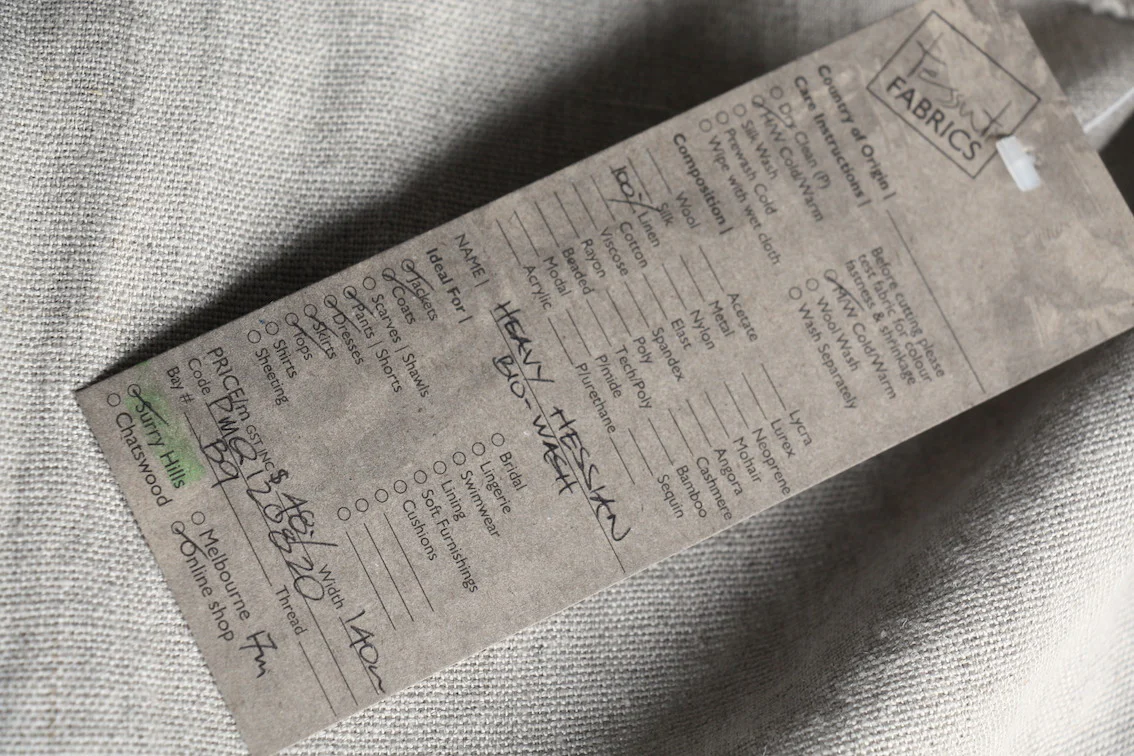 Tessuti
FABRICS
Country of Origin |
Care Instructions |
Dry Clean (P)
H/W Cold/Warm
Silk Wash
Prewash Cold
Wipe with wet cloth
Before cutting please
test fabric for colour
fastness & shrinkage
H/W Cold/Warm
Wool Wash
Wash Separately
Composition |
Wool
Silk
100% Linen
Cotton
Viscose
Rayon
Beaded
Modal
Acrylic
Acetate
Metal
Nylon
Elast
Spandex
Poly
Tech/Poly
P/mide
P/urethane
Lycra
Lurex
Neoprene
Mohair
Angora
Cashmere
Bamboo
Sequin
NAME | HEAVY HESSIAN
BIO-WASH
Ideal For |
Jackets
Coats
Scarves | Shawls
Pants | Shorts
Dresses
Skirts
Tops
Shirts
Sheeting
Bridal
Lingerie
Swimwear
Lining
Soft Furnishings
Cushions
PRICE/m GST INC $ 48/ Width 140
Code
Bay # B9 Thread
Surry Hills
Chatswood
Melbourne
Online shop 17m